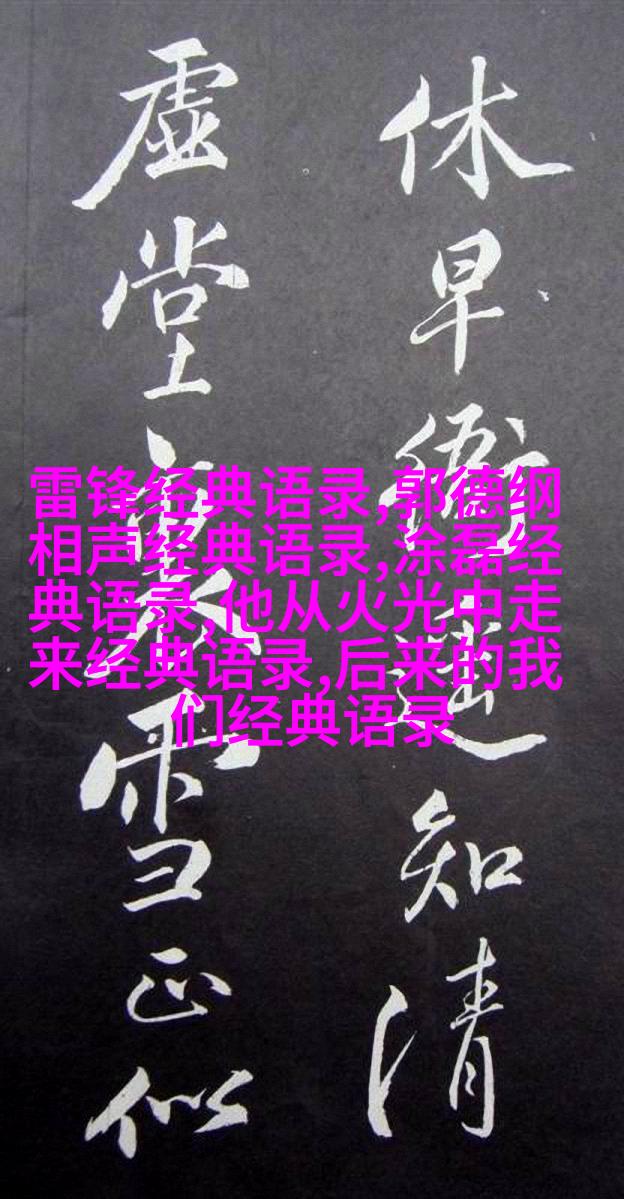 休早衙遥知清
虚堂裏雪正似
雷锋经典语录,郭德纲
相声经典语录,涂磊经
典语录,他从火光中走
来经典语录,后来的我
们经典语录